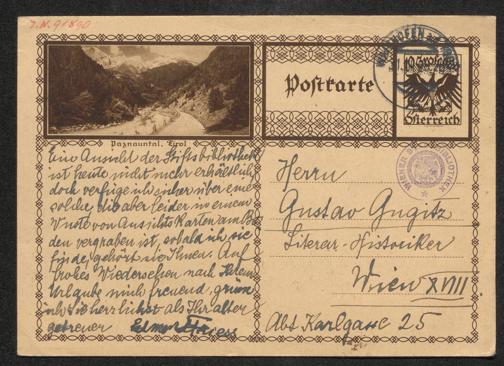 I.N. 91890
Paznauntal. Tirol
Postkarte
10 Groschen
Österreich
Eine Ansicht der Stiftsbibliothek
ist heute nicht mehr erhältlich,
doch verfüge ich sicher über eine
solche, die aber leider in einem
Wuste von Ansichtskarten am Bo
den vergraben ist, sobald ich sie
finde, gehört sie Ihnen. Auf
frohes Wiedersehen nach Ihrem
Urlaube mich freuend, grüsse
ich Sie herzlichst als Ihr alter
getreuer
Herrn
Gustav Gugitz
Literar-Historiker
Wien XVIII
Abt Karlgasse 25